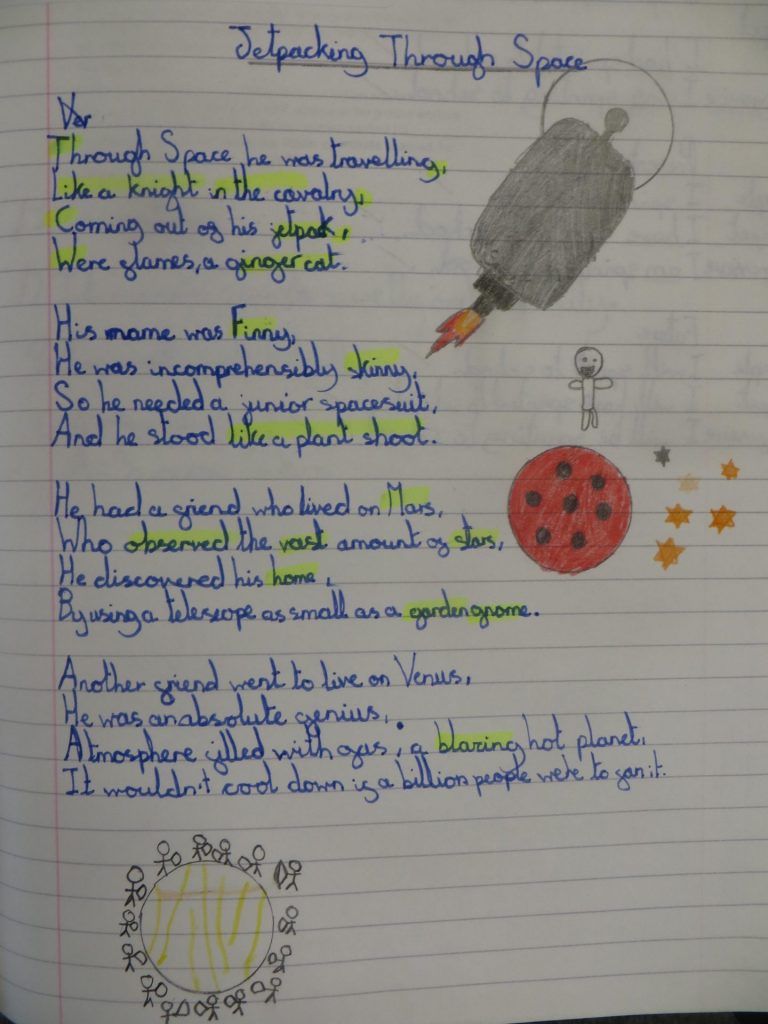 Jetpacking Through Space
Ver
Through Space, he was travelling,
Like a knight in the cavalry,
Coming out of his jetpak,
Were flames, a ginger cat.
His name was Finny,
He was incomprehensibly skinny,
So he needed a junior spacesuit,
And he stood like a plant shoot.
He had a friend who lived on Mars,
Who observed the vast amount of stars,
He discovered his home,
By using a telescope as small as a garden gnome.
Another friend went to live on Venus,
He was an absolute genius,
Atmosphere filled with gas, a blazing hot planet,
It wouldn't cool down if a billion people we're to fan it.